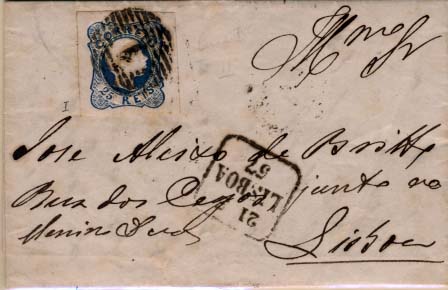 CORREIO
25 REIS
I
Illmo Sr
Jose Aleixo de Britto
Rua dos junto ao
Menino Deos
Lisboa
21
LISBOA
57